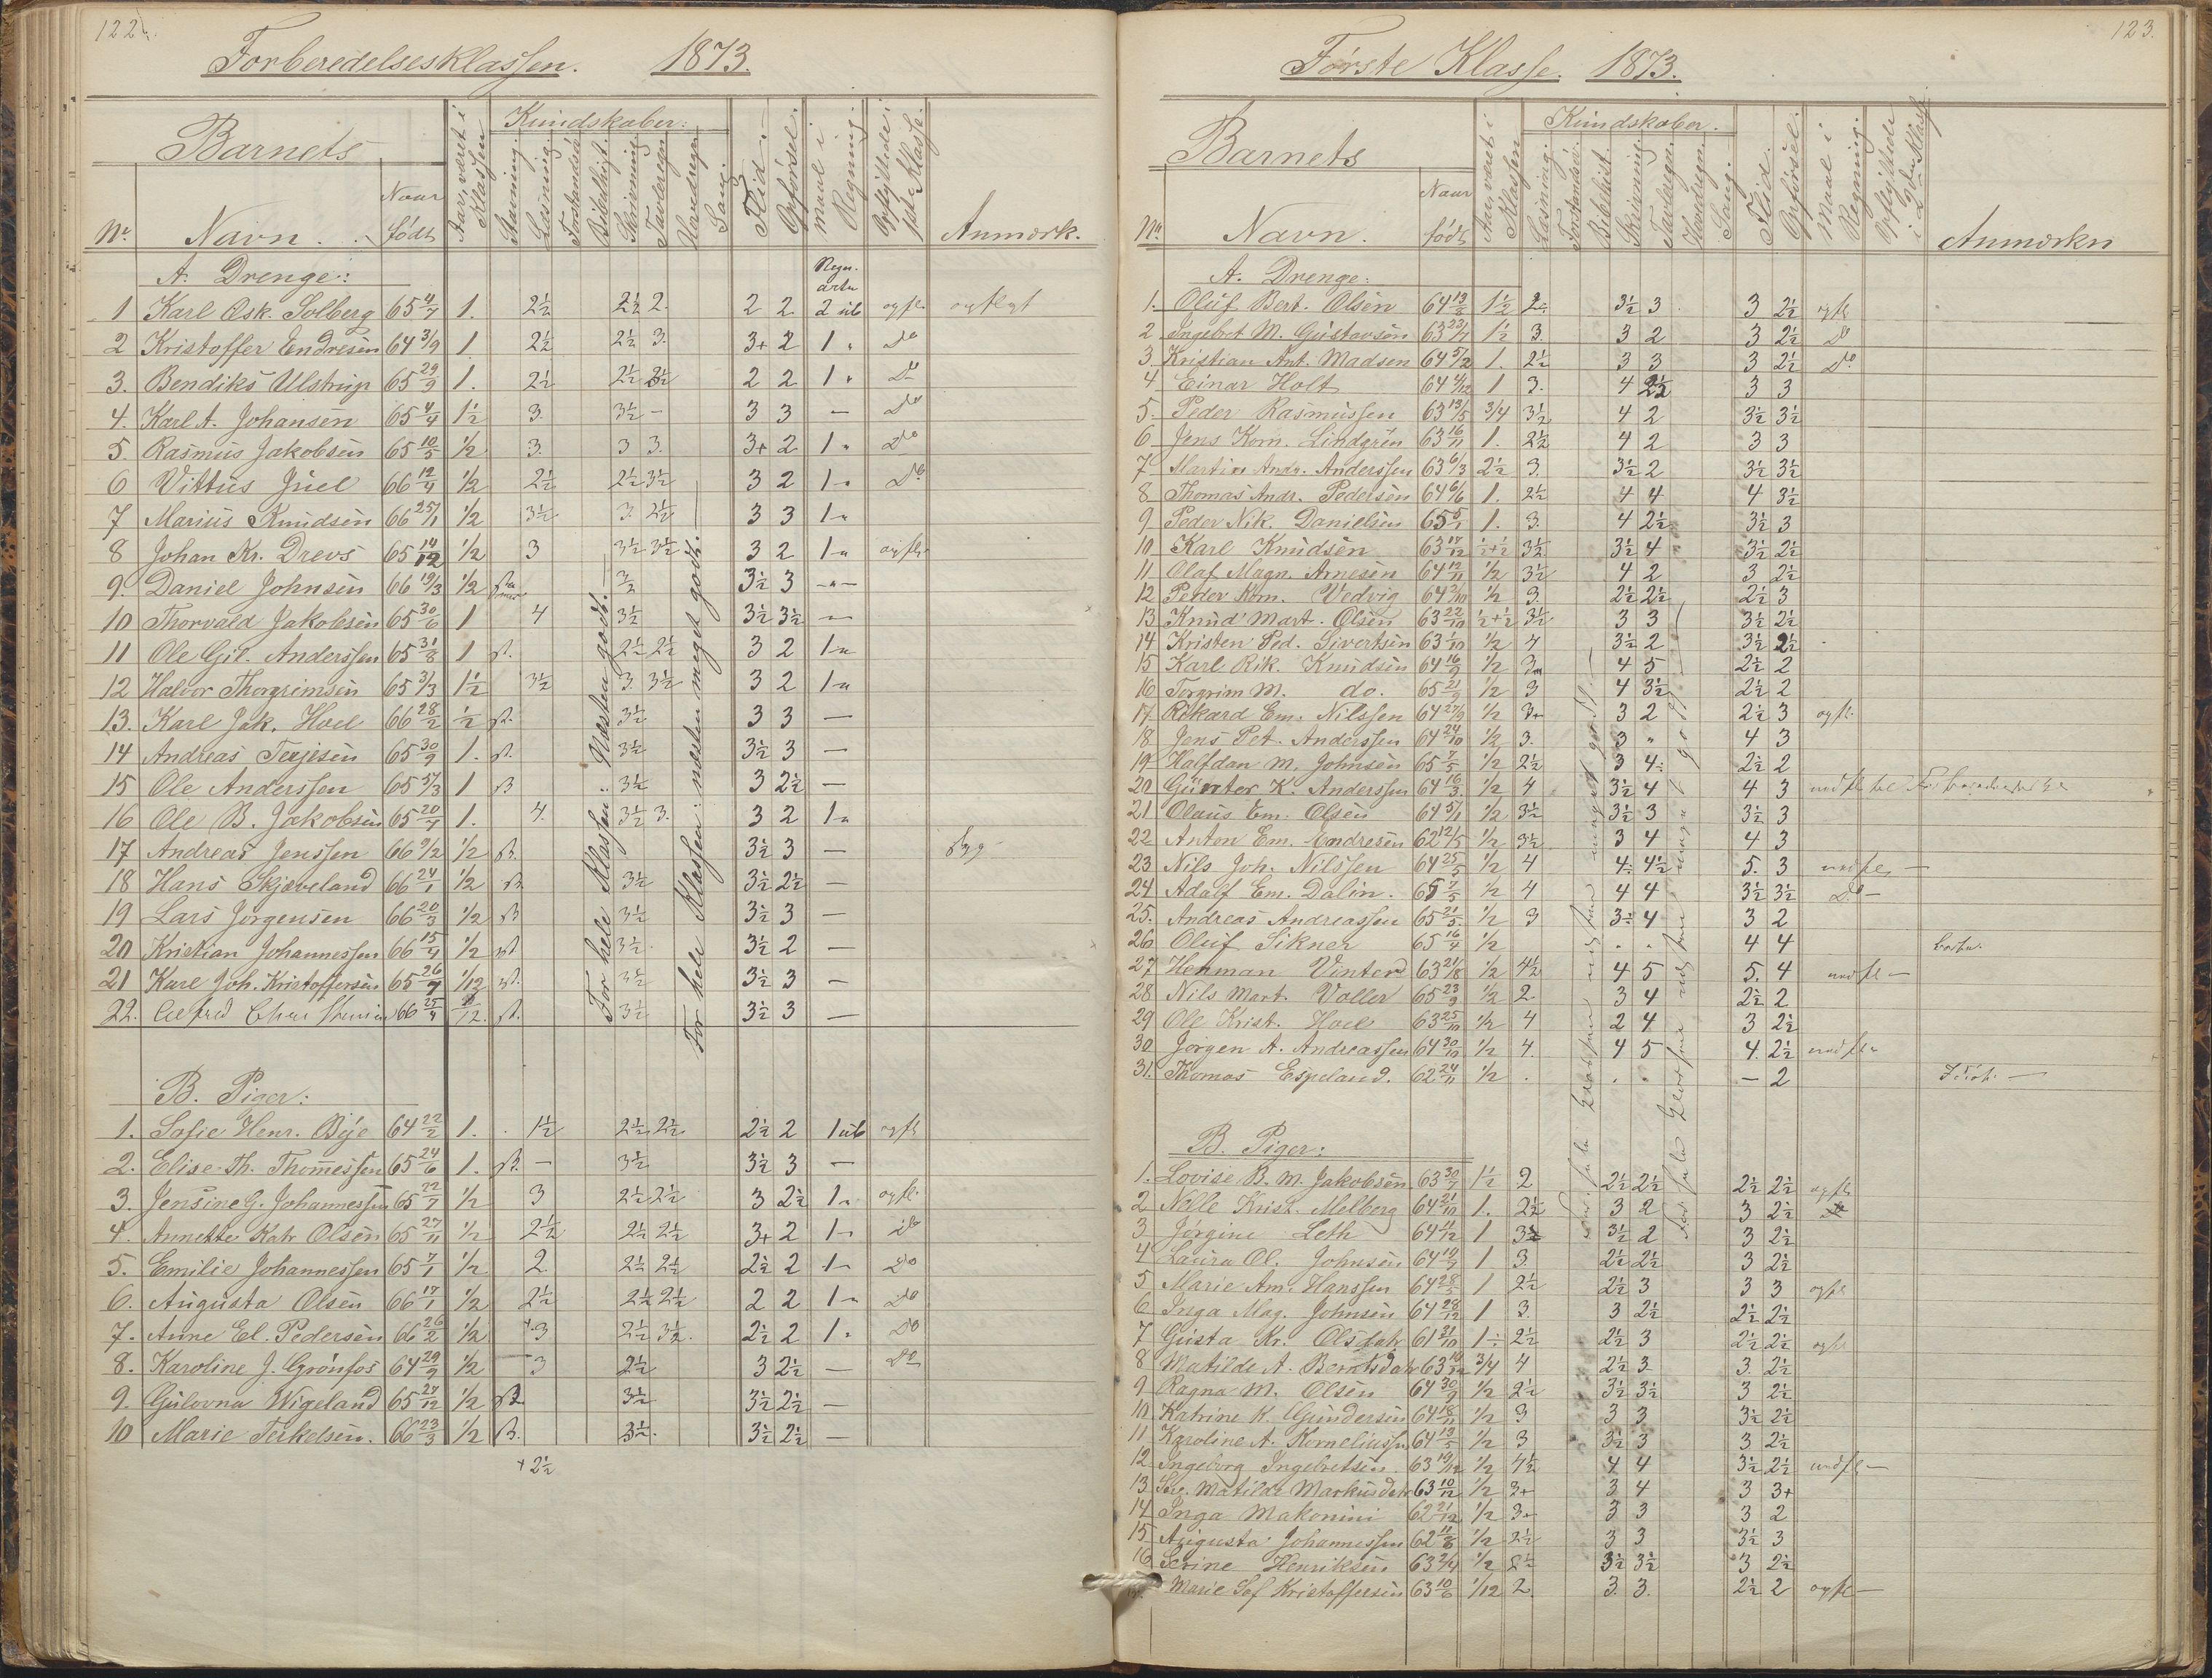 122
Forberedelsesklassen. 1873.
Barnets
Kundskaber:
No. Navn. Naar født Aar været i Klassen Stavning. Læsning. Forstandsø. Bibelhist. Skrivning. Tavleregn. Hovedregn. Sang. Flid. Opførsel. Maal i Regning. Opflyttede i 1ste Klasse. Anmærk.
A. Drenge: Regn. arter
1 Karl Osk. Solberg 65 4/7 1. 2½ 2½ 2. 2 2 2 ub opfl. opflyt
2 Kristoffer Endresen 64 3/9 1 2½ 2½ 3. 3+ 2 1 " Do
3. Bendiks Ulstrup 65 29/9 1. 2½ 2½ 2½ 2 2 1 " Do
4. Karl A. Johansen 65 4/4 1½ 3. 3½ - 3 3 - Do
5. Rasmus Jakobsen 65 10/5 ½ 3. 3 3. 3+ 2 1 " Do
6 Vittus Juel 66 12/4 ½ 2½ 2½ 3½ 3 2 1 " Do
7 Marius Knudsen 66 25/1 ½ 3½ 3. 2½ 3 3 1 "
8 Johan Kr. Drevs 65 14/12 ½ 3 3½ 3½ 3 2 1 " opfl.
9. Daniel Johnsen 66 19/3 ½ 3½ 3 - " -
10 Thorvald Jakobsen 65 30/6 1 4 3½ 3½ 3½ -
11 Ole Git. Anderssen 65 31/8 1 st. 2½ 2½ 3 2 1 "
12 Halvor Thorgrimsen 65 3/3 1½ 3½ 3. 3½ 3 2 1 "
13. Karl Jak. Hoel 66 28/2 ½ st. 3½ 3 3 -
14 Andreas Terjesen 65 30/9 1. st. 3½ 3½ 3 -
15 Ole Anderssen 65 1 st 3½ 3 2½ -
16 Ole B. Jakobsen 65 20/7 1. 4. 3½ 3. 3 2 1 "
17 Andreas Jenssen 66 9/2 ½ st. 3½ 3 -
18 Hans Skjæveland 66 24/1 ½ st. 3½ 3½ 2½ -
19 Lars Jørgensen 66 20/3 ½ st 3½ 3½ 3 -
20 Kristian Johannessen 66 15/4 ½ st. 3½ 3½ 2 -
21 Karl Joh. Kristoffersen 65 26/7 1/12 st. 3½ 3½ 3 -
22. Alfred 66 25/4 st. 3½ 3½ 3 -
For hele Klassen: Næsten godt. -
For hele Klassen: næsten meget godt. -
B. Piger:
1. Sofie Henr. Bye 64 22/2 1. 1½ 2½ 2½ 2½ 2 1 ub opfl
2. Elise Th. Thomessen 65 24/6 1. st. - 3½ 3½ 3 -
3. Jensine G. Johannessen 65 22/7 ½ 3 2½ 2½ 3 2½ 1 " opfl.
4. Annette Katr Olsen 65 27/11 ½ 2½ 2½ 2½ 3+ 2 1 " do
5. Emilie Johannessen 65 7/1 ½ 2 2½ 2½ 2½ 2 1 " Do
6. Augusta Olsen 66 17/1 ½ 2½ 2½ 2½ 2 2 1 " Do
7. Anne El. Pedersen 66 26/2 ½ +3 2½ 3½ 2½ 2 1 " Do
8. Karoline J. Grønfos 64 29/9 ½ 3 2½ 3 2½ - Do
9. Gulovna Wigeland 65 27/12 ½ st. 3½ 3½ 2½ -
10 Marie Terkelsen. 66 23/3 ½ st. 3½. 3½ 2½ -
+ 2½
123.
Første Klasse. 1873.
Barnets
Kundskaber.
No. Navn. Naar født Aar været i Klassen Læsning. Forstandsø. Bibelhist. Skrivning. Tavleregn. Hovedregn. Sang. Flid. Opførsel. Maal i Regning. Opflyttede i 2den Klasse. Anmærkn
A. Drenge:
1. Oluf Bert. Olsen 64 1½ 2 3½ 3 3 2½ opfl
2 Ingebret M. Gustavsen 63 23/7 1½ 3. 3 2 3 2½ Do
3 Kristian Ant. Madsen 64 5/2 1. 2½ 3 3 3 2½ Do.
4 Einar Holt 64 4/12 1 3. 4 2½ 3 3
5. Peder Rasmussen 63 13/5 3/4 3½ 4 2 3½ 3½
6 Jens Korn. Lindgren 63 16/11 1. 2½ 4 2 3 3
7 Martin Andr. Anderssen 63 6/3 2½ 3. 3½ 2 3½ 3½
8 Thomas Andr. Pedersen 64 6/6 1. 2½ 4 4 4 3½
9 Peder Nik. Danielsen 65 5/1 1. 3. 4 2½ 3½ 3
10 Karl Knudsen 63 17/12 ½+½ 3½ 3½ 4 3½ 2½
11 Olaf Magn. Arnesen 64 12/11 ½ 3½ 4 2 3 2½
12 Peder Korn. Vedvig 64 3/10 ½ 3. 2½ 2½ 2½ 3
13 Knud Mart. Olsen 63 22/10 ½+½ 3½ 3 3 3½ 2½
14 Kristen Ped. Sivertsen 63 1/10 ½ 4 3½ 2 3½ 2½
15 Karl Rik. Knudsen 64 16/9 ½ 3 4 5 2½ 2
16 Torgrim M. do. 65 21/9 ½ 3 4 3½ 2½ 2
17. Rikard Em. Nilssen 64 27/9 ½ 3+ 3 2 2½ 3 opfl.
18. Jens Pet. Anderssen 64 24/10 ½ 3. 3 " 4 3
19 Halfdan M. Johnsen 65 7/5 ½ 2½ 3 4 2½ 2
20 K. Anderssen 64 16/3 ½ 4 3½ 4 4 3 nedfl til Forberedelseskl.
21 Olaus Em. Olsen 64 ½ 3½ 3½ 3 3½ 3
22 Anton Em. Andresen 62 12/5 ½ 3½ 3 4 4 3
23. Nils Joh. Nilssen 64 25/5 ½ 4 4 4½ 5. 3 nedfl. -
24. Adolf Em. Dalin. 65 7/5 ½ 4 4 4 3½ 3½ Do -
25. Andreas Andreassen 65 21/5 ½ 3 3 4 3 2
26 Oluf Sikner 65 16/4 ½ . . 4 4
27 Herman Vinter 63 21/8 ½ 4½ 4 5 5. 4 nedfl -
28 Nils Mart. Voller 65 23/9 ½ 2 3 4 2½ 2
29 Ole Krist. Hoel 63 25/10 ½ 4 2 4 3 2½
30 Jørgen A. Andreassen 64 30/10 ½ 4. 4 5 4. 2½ nedfl
31. Thomas Espeland. 62 24/11 ½ . . . - 2
B. Piger:
1. Lovise B. M. Jakobsen 63 30/7 1½ 2 2½ 2½ 2½ 2½ opfl
2 Nelle Krist. Melberg 64 21/10 1. 2½ 3 2 3 2½
3 Jørgine Leth 64 1 3½ 3½ 2 3 2½
4 Laura Ol. Johnsen 64 19/9 1 3. 2½ 2½ 3 2½
5 Marie Am. Hanssen 64 28/5 1 2½ 2½ 3 3 3 opfl
6 Inga Mag. Johnsen 64 28/12 1 3. 3 2½ 2½ 2½
7 Gusta Kr. Olsdatr 61 31/10 1 2½ 2½ 3 2½ 2½ opfl
8 Matilde A. Berntsdatr 63 3/4 4 2½ 3 3. 2½
9 Ragna M. Olsen 64 30/9 ½ 2½ 3½ 3½ 3 2½
10 Katrine K. Gundersen 64 18/11 ½ 3 3 3 3½ 2½
11 Karoline A. Korneliussen 64 13/5 ½ 3 3½ 3 3 2½
12 Ingeborg Ingebretsen 63 19/12 ½ 4½ 4 4 3½ 2½ nedfl -
13 Matilde Markusdatr 63 10/12 ½ 3+ 3 4 3 3+
14 Inga Makonini 62 21/12 ½ 3+ 3 3 3 2
15 Augusta Johannessen 62 11/8 ½ 2½ 3 3 3½ 3
16 Serine Henriksen 63 2/4 ½ 2½ 3½ 3½ 3 2½
17. Marie Sof Kristoffersen 63 10/6 1/12 2. 3. 3. 2½ 2 opfl -